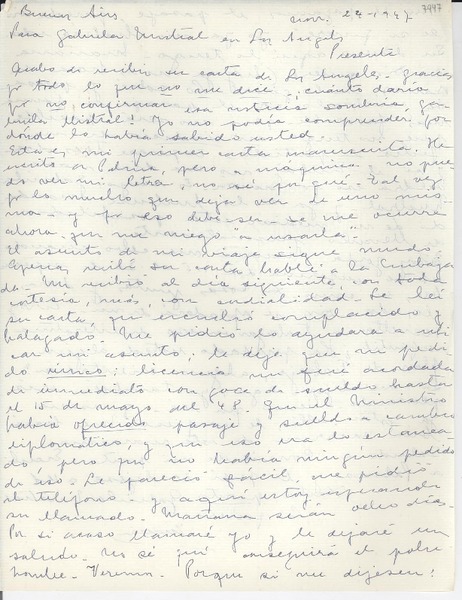 Buenos Aires nov. 24-1947 7947
Para Gabriela Mistral en Los Angeles
Presente
Acabo de recibir su carta de Los Angeles. Gracias
por todo lo que no me dice. Cuánto daría
por no confirmar esa noticia sombría, Ga-
briela Mistral! Yo no podía comprender por
dónde lo había sabido usted.
Esta es mi primer carta manuscrita. He
escrito a Palma, pero a máquina. No pue-
do ver mi letra, no sé por qué. Tal vez
por lo mucho que deja ver de uno mis-
ma - y por eso debe ser - se me ocurre
ahora - que me niego "a usarla".
El asunto de mi viaje sigue mudo.
Apenas recibí su carta hablé a la Embaja-
da. Me recibió al día siguiente, con toda
cortesía, más, con cordialidad. Le leí
su carta, que escuchó complacido y
halagado. Me pidió lo ayudara a ubi-
car mi asunto; le dije que mi pedi-
do único: licencia me fué acordada
de inmediato con goce de sueldo hasta
el 15 de mayo del 48. Que el Ministro
había ofrecido pasaje y sueldo a cambio
diplomático, y que eso era lo estanca-
do, pero que no había ningún pedido
de eso. Le pareció fácil, me pidió
el teléfono - y aquí estoy esperando
su llamado. Mañana serán ocho días.
Por si acaso llamaré yo y le dejaré un
saludo. No sé qué conseguirá el pobre
hombre. Veremos. Porque si me dijesen: